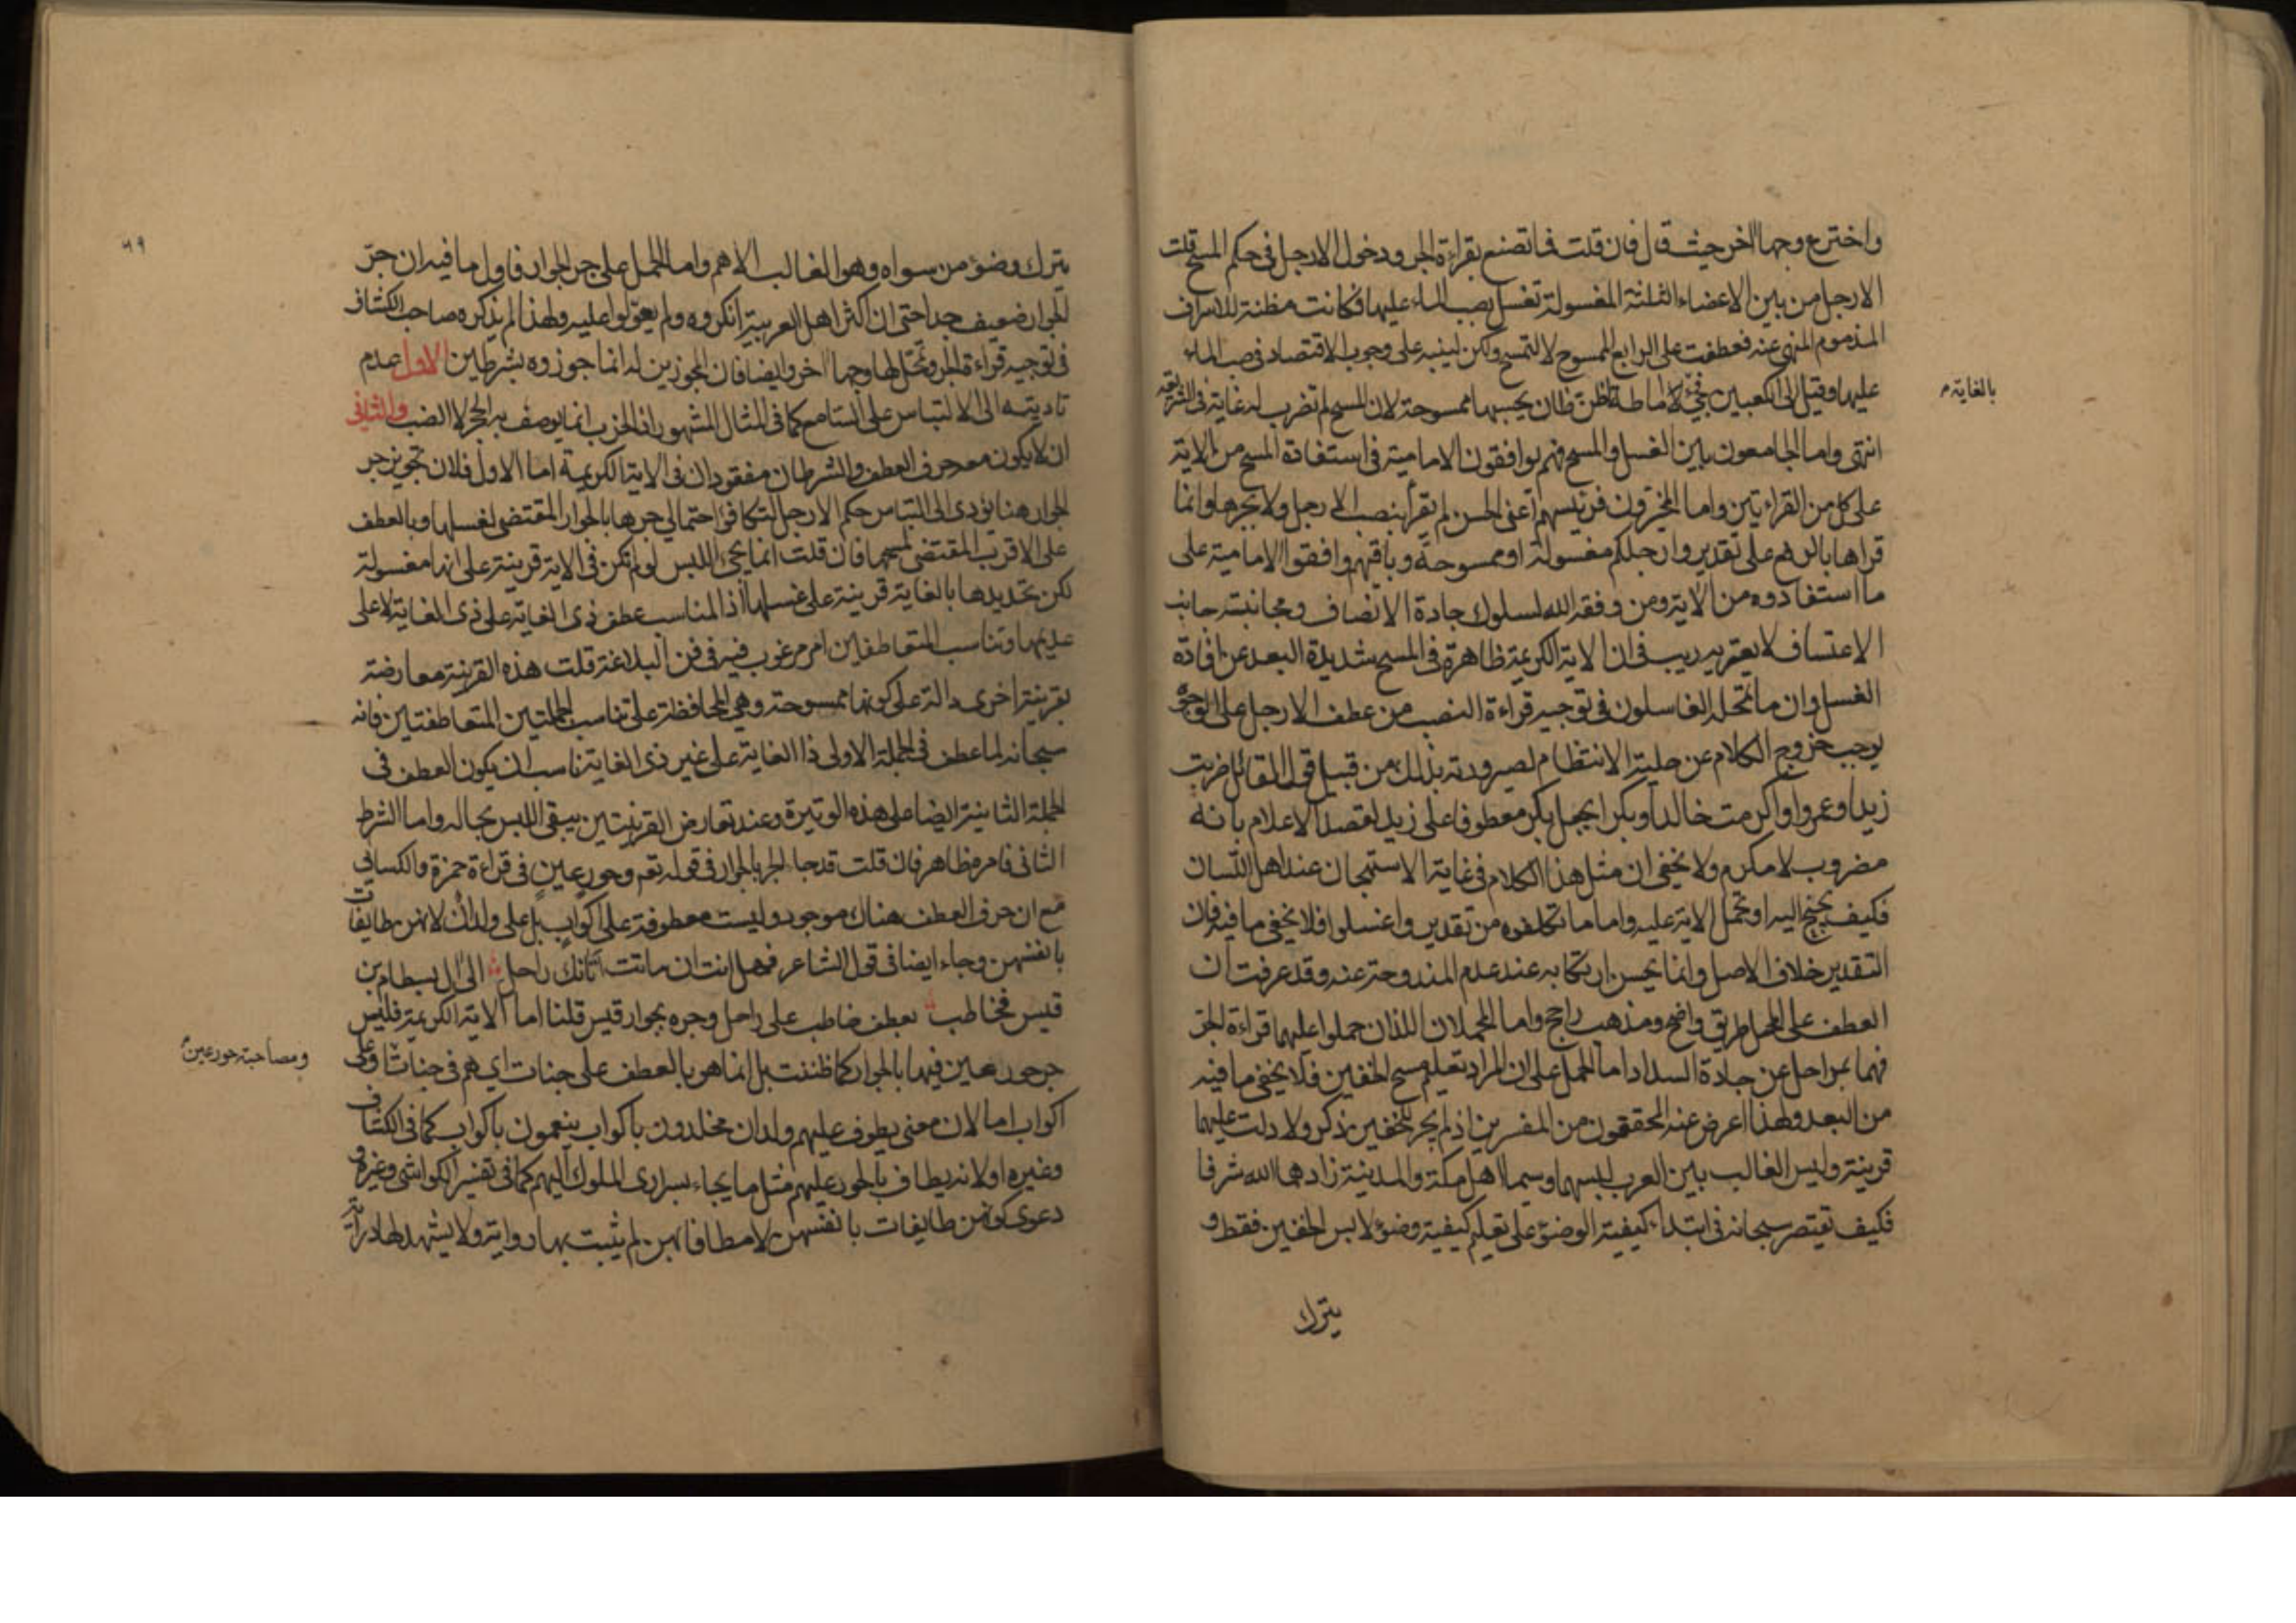 واخترع وجها اخر حيث قال فان قلت فما تصنع بقراءة الجر ودخول الارجل فى حكم المسح قلت
الارجل من بين الاعضاء الثلثة المغسولة تغسل بصب الماء عليها فكانت مظنة للاسراف
المذموم المنهى عنه فعطفت على الرابع الممسوح لا لتمسح ولكن لينبه على وجوب الاقتصاد فى صب الماء
عليها وقيل الى الكعبين فجئ لاماطة ظن ظان يحسبها ممسوحة لان المسح لم تضرب له غاية فى الشريعة
بالغاية م
انتهى واما الجامعون بين الغسل والمسح فهم يوافقون الامامية فى استفادة المسح من الاية
على كل من القراءتين واما المخيرون فرئيسهم اعنى الحسن لم يقرأ بنصب الارجل ولا بجرها وانما
قراها بالرفع على تقدير وارجلكم مغسولة او ممسوحة وباقيهم وافقوا الامامية على
ما استفادوه من الاية ومن وفقه الله لسلوك جادة الانصاف ومجانبة جانب
الاعتساف لا يعتريه ريب فى ان الاية الكريمة ظاهرة فى المسح شديدة البعد عن افادة
الغسل وان ما تمحله الغاسلون فى توجيه قراءة النصب من عطف الارجل على الوجوه
يوجب خروج الكلام عن حلية الانتظام لصيرورته بذلك من قبيل قول القائل ضربت
زيدا وعمروا واكرمت خالدا وبكرا بجعل بكر معطوفا على زيد لقصد الاعلام بانه
مضروب لا مكرم ولا يخفى ان مثل هذا الكلام فى غاية الاستهجان عند اهل اللسان
فكيف يجنح اليه او تحمل الاية عليه واما ما تكلفوه من تقدير واغسلوا فلا يخفى ما فيه فان
التقدير خلاف الاصل وانما يحسن ارتكابه عند عدم المندوحة عنه وقد عرفت ان
العطف على المحل طريق واضح ومذهب راجح واما المحملان اللذان حملوا عليهما قراءة الجر
فهما بمراحل عن جادة السداد اما الحمل على ان المراد تعليم مسح الخفين فلا يخفى ما فيه
من البعد ولهذا اعرض عنه المحققون من المفسرين اذ لم يجر للخفين ذكر ولا دلت عليهما
قرينة وليس الغالب بين العرب لبسهما وسيما اهل مكة والمدينة زادهما الله شرفا
فكيف يقتصر سبحانه فى ابتداء كيفية الوضوء على تعليم كيفية وضوء لابس الخفين فقط و
يترك
٦٩
يترك وضوء من سواه وهو الغالب الاهم واما الحمل على جر الجوار فاول ما فيه ان جر
الجوار ضعيف جدا حتى ان اكثر اهل العربية انكروه ولم يعولوا عليه ولهذا لم يذكره صاحب الكشاف
فى توجيه قراءة الجر وتمحل لها وجها اخر وايضا فان المجوزين له انما جوزوه بشرطين الاول عدم
تاديته الى الالتباس على السامع كما فى المثال المشهور اذ الخرب انما يوصف به الجحر لا الضب والثانى
ان لا يكون معه حرف العطف والشرطان مفقودان فى الاية الكريمة اما الاول فلان تجويز جر
الجوار هنا يؤدى الى التباس حكم الارجل لتكافؤ احتمالى جرها بالجوار المقتضى لغسلها وبالعطف
على الاقرب المقتضى لمسحها فان قلت انما يجئ اللبس لو لم تكن فى الاية قرينة على انها مغسولة
لكن تحديدها بالغاية قرينة على غسلها اذ المناسب عطف ذى الغاية على ذى الغاية لا على
عديمها وتناسب المتعاطفين امر مرغوب فيه فى فن البلاغة قلت هذه القرينة معارضة
بقرينة اخرى دالة على كونها ممسوحة وهى المحافظة على تناسب الجملتين المتعاطفتين فانه
سبحانه لما عطف فى الجملة الاولى ذا الغاية على غير ذى الغاية ناسب ان يكون العطف فى
الجملة الثانية ايضا على هذه الوتيرة وعند تعارض القرينتين يبقى اللبس بحاله واما الشرط
الثانى فامره ظاهر فان قلت قد جاء الجر بالجوار فى قوله تعم وحور عين فى قراءة حمزة والكسائى
مع ان حرف العطف هناك موجود وليست معطوفة على اكواب بل على ولدان لانهن طايفات
بانفسهن وجاء ايضا فى قول الشاعر فهل انت ان ماتت اتانك راحل الى ال بسطام بن
قيس فخاطب بعطف خاطب على راحل وجره بجوار قيس قلنا اما الاية الكريمة فليس
جر حور عين فيها بالجوار كما ظننت بل انما هو بالعطف على جنات اى هم فى جنات او على
ومصاحبة حور عين
اكواب اما لان معنى يطوف عليهم ولدان مخلدون باكواب ينعمون باكواب كما فى الكشاف
وغيره او لانه يطاف بالحور عليهم مثل ما يجاء بسرارى الملوك اليهم كما فى تفسير الكواشى وغيره و
دعوى كونهن طايفات بانفسهن لا مطافا بهن لم يثبت بها رواية ولا يشهد لها دراية